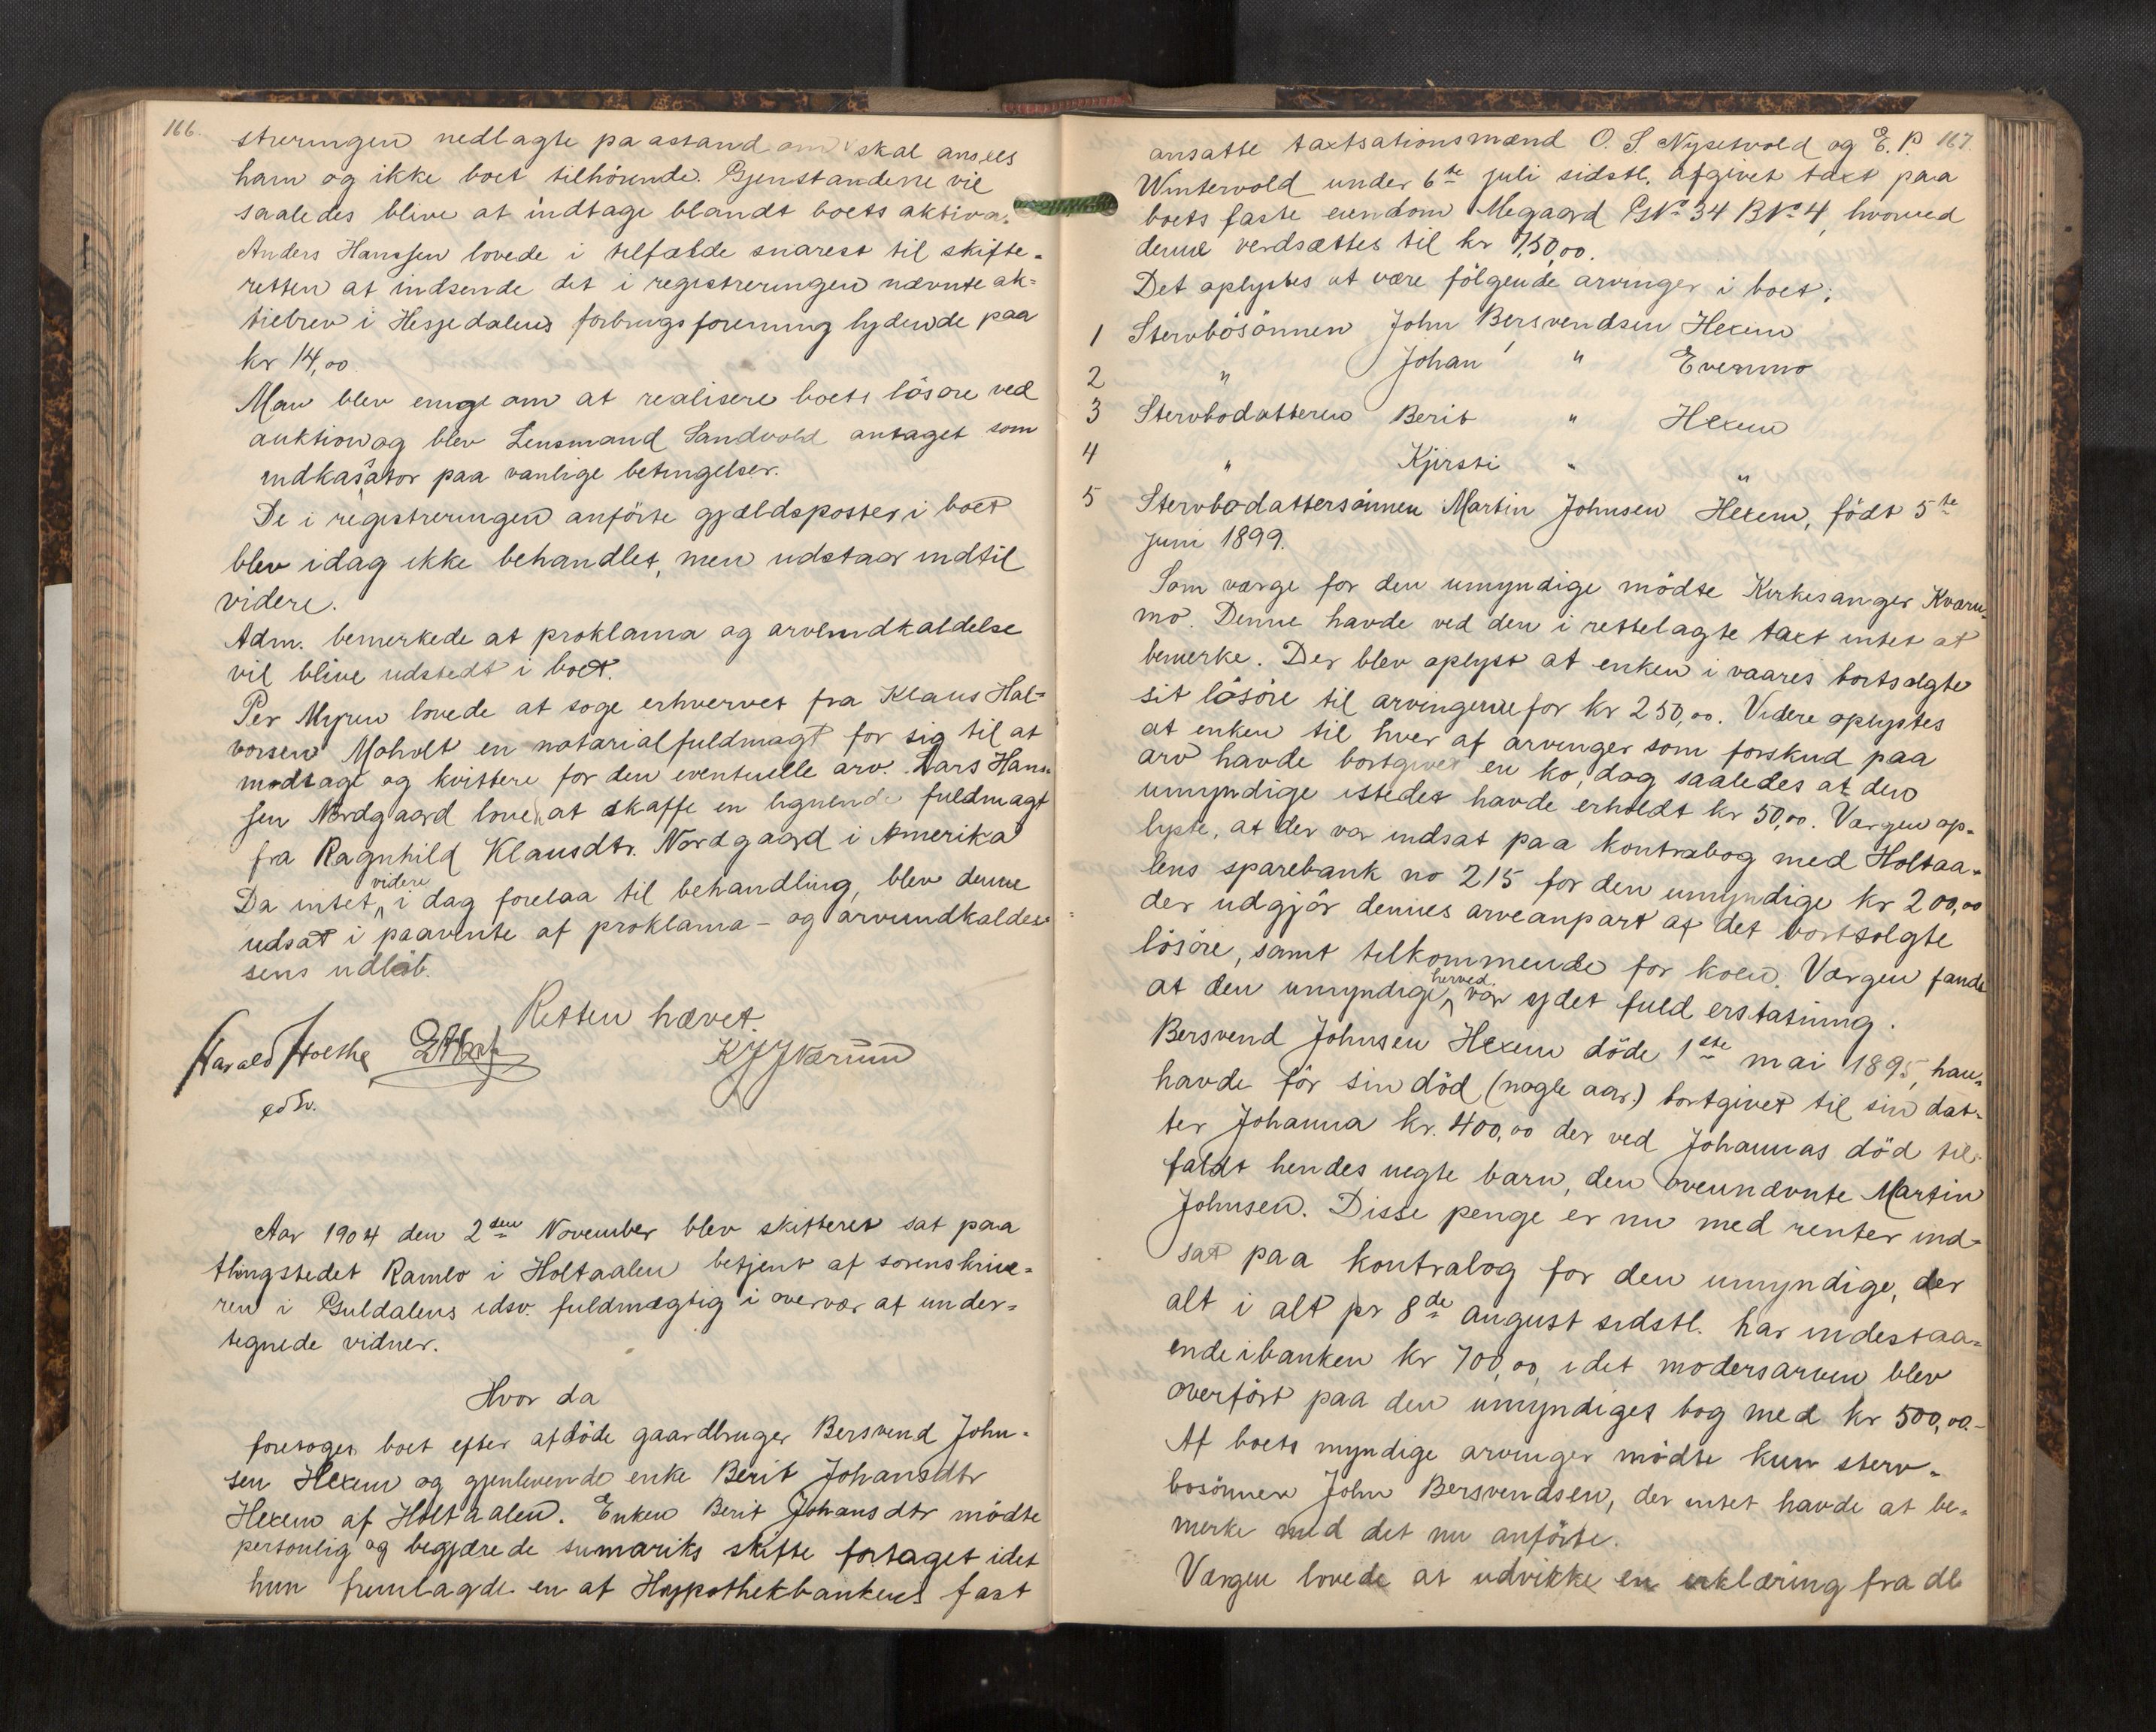 166.
streringen nedlagte paastand om skal ansees
ham og ikke boet tilhörende. Gjenstandene vil
saaledes blive at indtage blandt boets aktiva.
Anders Hanssen lovede i tilfælde snarest til skifte-
retten at indsende det i registreringen nævnte ak-
tiebrev i Hessedalens forbrugsforening lydende paa
kr 14,00
Man blev enige om at realisere boets lösöre ved
auktion og blev Lensmand Sandvold antaget som
indkassator paa vanlige betingelser.
De i registreringen anförte gjældsposter i boet
blev idag ikke behandlet, men udstaar indtil
videre.
Adm. bemerkede at proklama og arveindkaldelse
vil blive udstedt i boet.
Per Myren lovede at söge erhvervet fra Klaus Hal-
vorsen Moholt en notarialfuldmagt for sig til at
modtage og kvittere for den eventuelle arv. Lars Hans-
sen Nordgaard loved at skaffe en lignende fuldmagt
fra Ragnhild Klausdtr. Nordgaard i Amerika
Da intet videre i dag forelaa til behandling, blev denne
udsat i paavente af proklama- og arveindkaldel-
sens udlöb.
Retten hævet.
Harald Holthe
KJJværum
edsv.
Aar 1904 den 2den November blev skifteret sat paa
thingstedet Ramlo i Holtaalen betjent af sorenskrive-
ren i Guldalens edsv. fuldmægtig i overvær af under-
tegnede vidner.
Hvor da
foretoges boet efter afdöde gaardbruger Bersvend John-
sen Hexem og gjenlevende enke Berit Johansdtr
Hexem af Holtaalen. Enken Berit Johansdtr mödte
personlig og begjærede sumariks skifte fortaget idet
hun fremlagde en af Hypothekbankens fast
167.
ansatte taxtsationsmænd O. S. Nysetvold og E. P.
Wintervold under 6te juli sidstl. afgivet taxt paa
boets faste eiendom Megaard GNo 34 BNo 4, hvorved
denne verdsættes til kr 750,00.
Det oplystes at være fölgende arvinger i boet:
1 Stervbosönnen John Bersvendsen Hexem
2 " Johan " Evenmo
3 Stervbodatteren Berit " Hexem
4 " Kjersti " "
5 Stervbodattersönnen Martin Johnsen Hexem, födt 5te
juni 1899.
Som værge for den umyndige mödte Kirkesanger Kværn-
mo. Denne havde ved den i rettelagte taxt intet at
bemerke. Der blev oplyst at enken i vaares bortsolgte
sit lösöre til arvingerne for kr 250,00. Videre oplystes
at enken til hver af arvinger som forskud paa
arv havde bortgivet en ko, dog saaledes at den
umyndige istedet havde erholdt kr 50,00. Værgen op-
lyste, at der var indsat paa kontrabog med Holtaa-
lens sparebank no 215 for den umyndige kr 200,00
der udgjör dennes arveanpart af det bortsolgte
lösöre, samt tilkommende for koen. Værgen fandt
at den umyndige herved var ydet fuld erstatning.
Bersvend Johnsen Hexem döde 1ste mai 1895, han
havde för sin död (nogle aar.) bortgivet til sin dat-
ter Johanna kr. 400,00 der ved Johannas död til-
faldt hendes uegte barn, den ovennævnte Martin
Johnsen. Disse penge er nu med renter ind-
sat paa kontrabog for den umyndige, der
alt i alt pr 8de august sidstl. har indestaa-
ende i banken kr 700,00, idet modersarven blev
overfört paa den umyndiges bog med kr 500,00.-
Af boets myndige arvinger mödte kun sterv-
bosönnen John Bersvendsen, der intet havde at be-
merke med det nu anförte.
Værgen lovede at udvikke en erklæring fra de